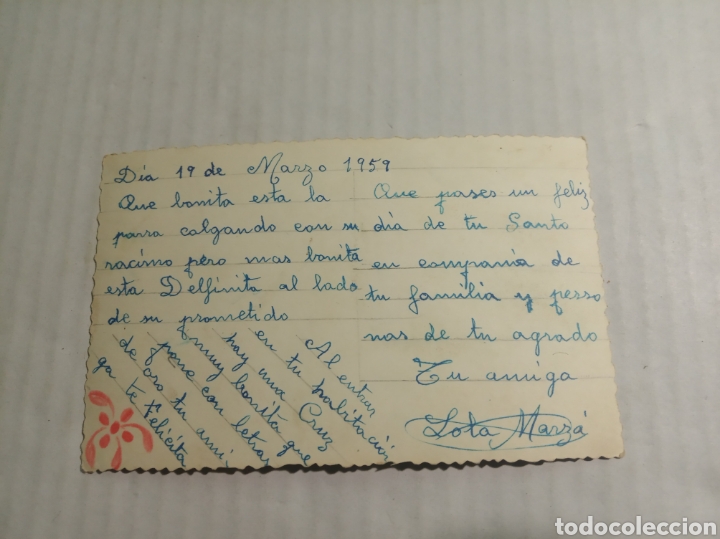 Día 19 de Marzo 1959
Que bonita esta la
parra calgando con su
racimo pero mas bonita
esta Delfinita al lado
de su prometido
Al entrar
en tu habitación
hay una Cruz
muy bonita que
pone con letras
de oro tu ami
ga te Felicita
Que pases un feliz
día de tu Santo
en compania de
tu familia y perso
nas de tu agrado
Tu amiga
Lola Marzá
todocoleccion